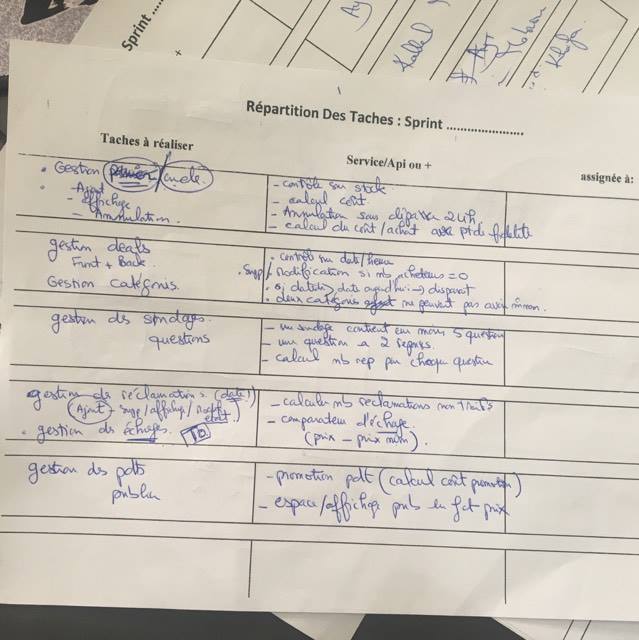 Sprint .....
Kallel
Khalfa
Répartition Des Taches : Sprint ........................
Taches à réaliser
Service/Api ou +
assignée à:
• Gestion panier / cmde.
- Ajout
- affichage
- Annulation.
- contrôle sur stock
- calcul coût
- Annulation sans dépasser 24h
- calcul du coût / achat avec pts de fidelité
gestion deals
Front + Back.
Gestion catégories.
• contrôl sur date/heure
• Supp/Modification si nb acheteurs = 0
• si date > date aujourd'hui → disparait
• deux catégories ne peuvent pas avoir m̂ nom.
gestion des sondages.
questions
- un sondage contient au moins 5 question
- une question a 2 reponses
- calcul nb rep par chaque question
gestion de réclamations (date!)
Ajout - supp/affichage/
• gestion de échages.
- calculer nb reclamations non traités
- comparateur d'échage
(prix - prix min).
gestion des pdts
- promotion pdt (calcul coût promotion)
- espace/affichage pub en fct prix